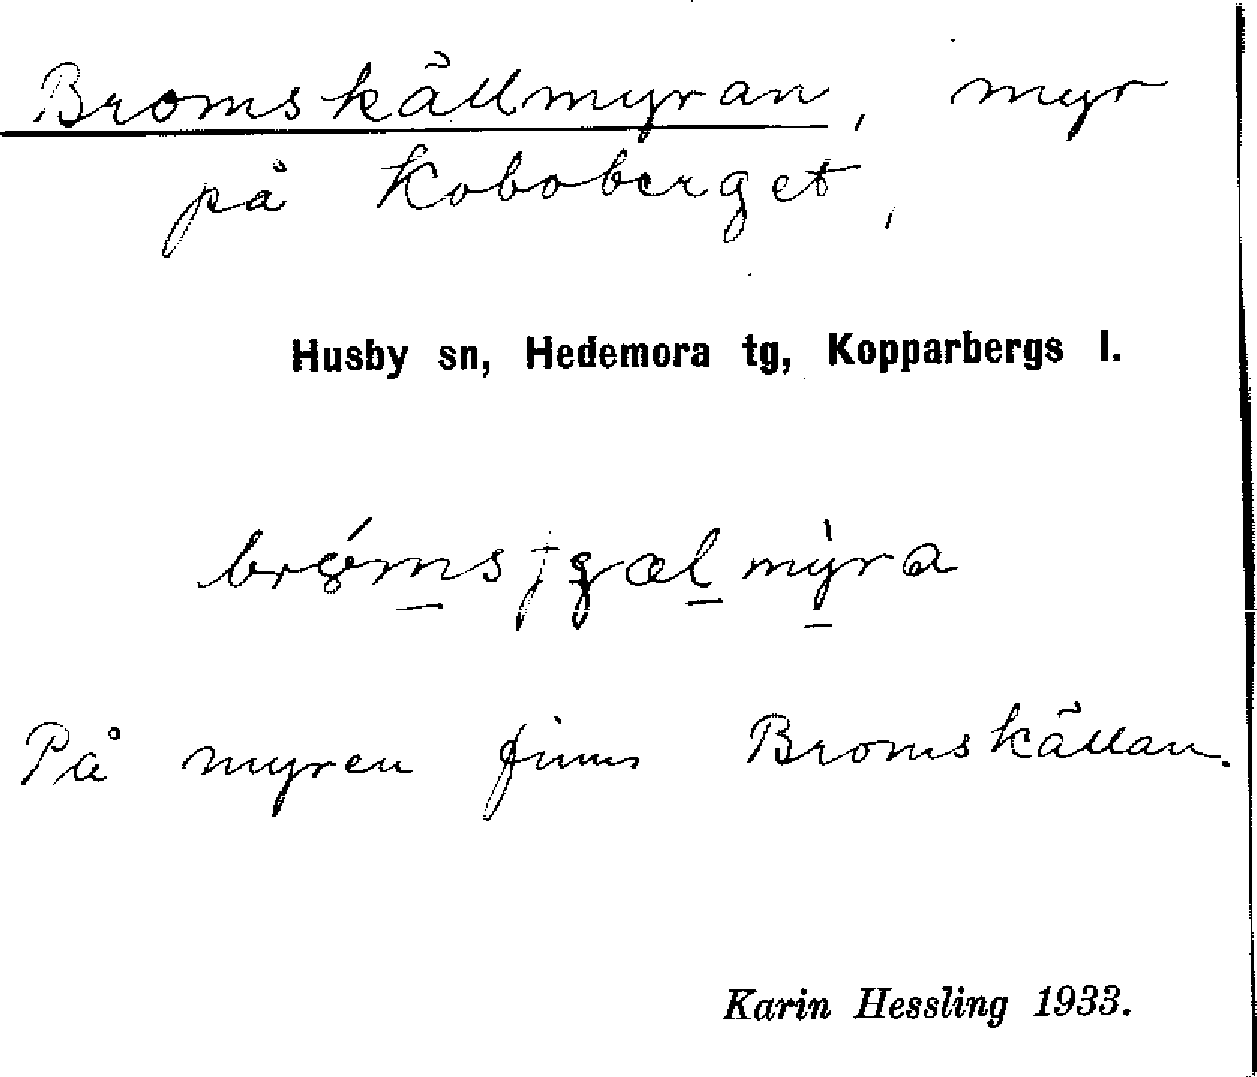 Bromskällmyran, myr
på Koboberget,
Husby sn, Hedemora tg, Kopparbergs l.
På myren finns Bromskällan.
Karin Hessling 1933.